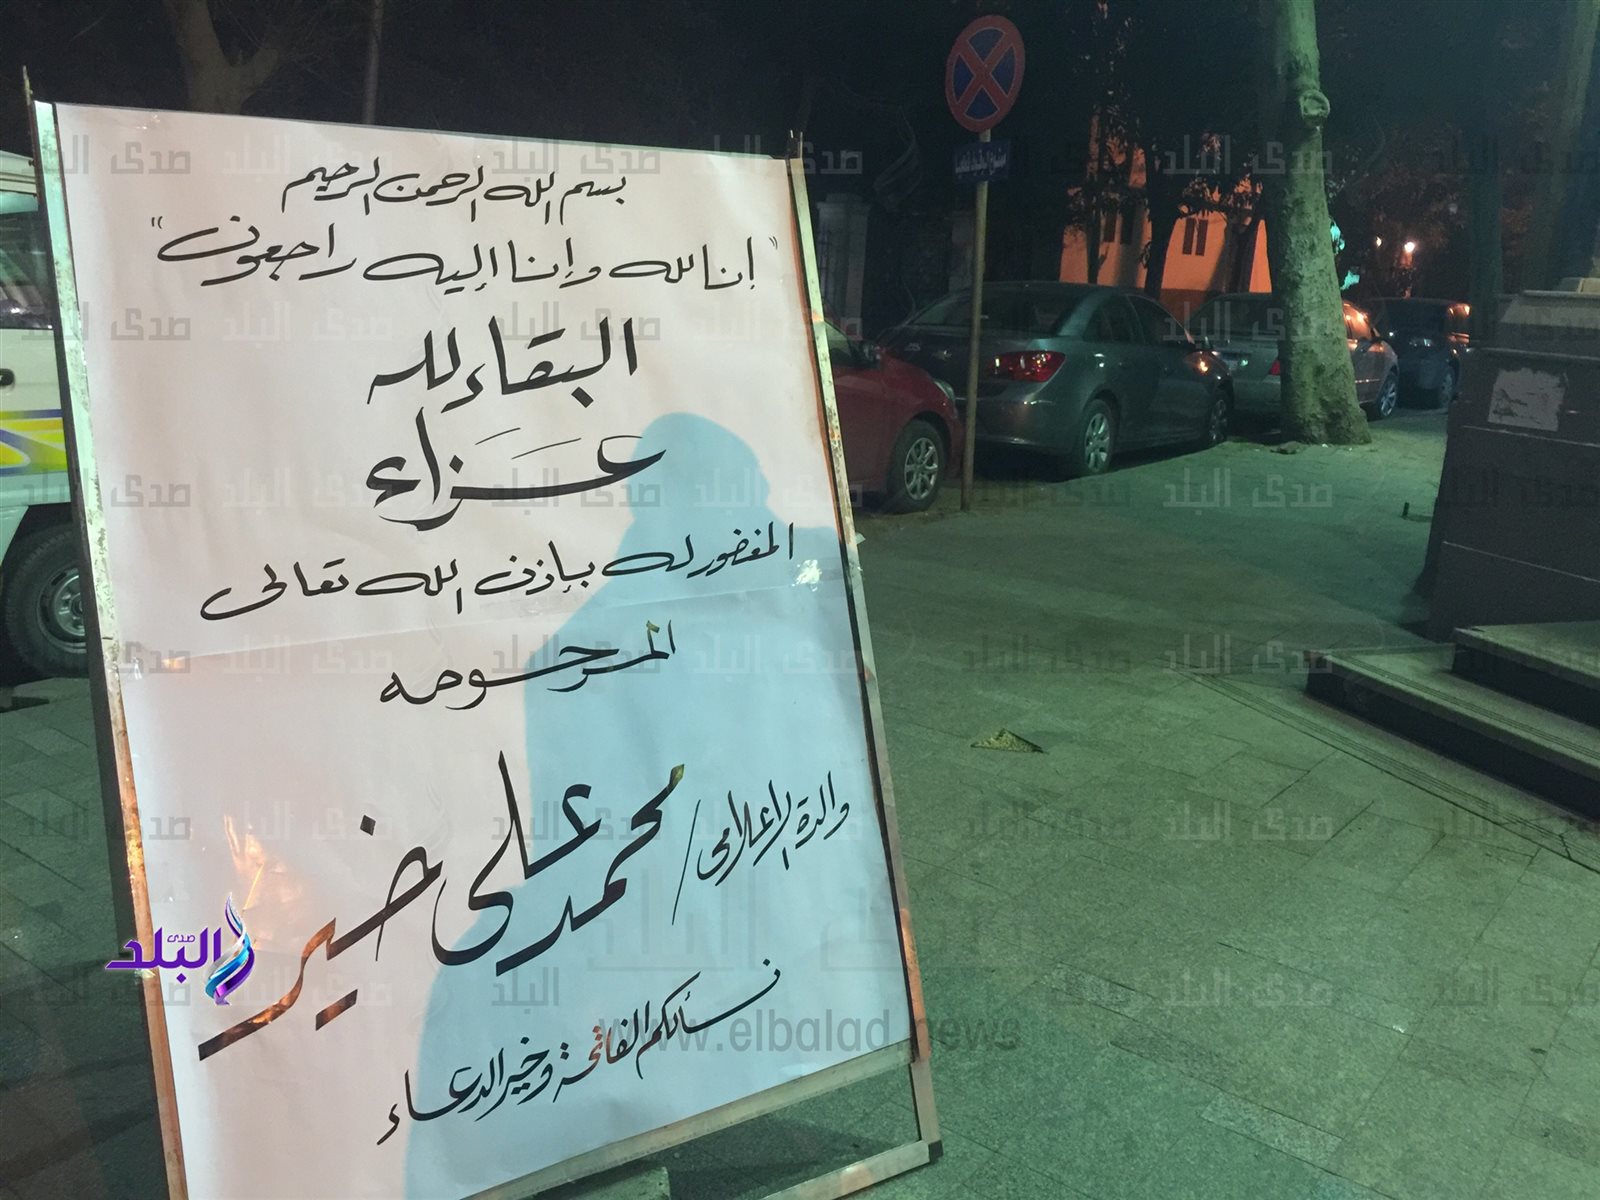 بسم الله الرحمن الرحيم
"إنا لله وإنا إليه راجعون"
البقاء لله
عَزاء
المغفور له بإذن الله تعالى
المرحومه
والدة الإعلامى / محمد على خير
نسألكم الفاتحة وخير الدعاء
صدى البلد
www.elbalad.news